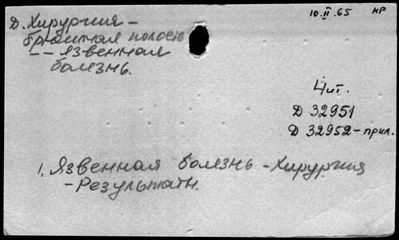 Д. Хирургия -
брюшная полость
-- Язвенная
болезнь.
10.II.65 НР
Чит.
Д 32951
Д 32952 - прил.
1. Язвенная болезнь - Хирургия
- Результаты.